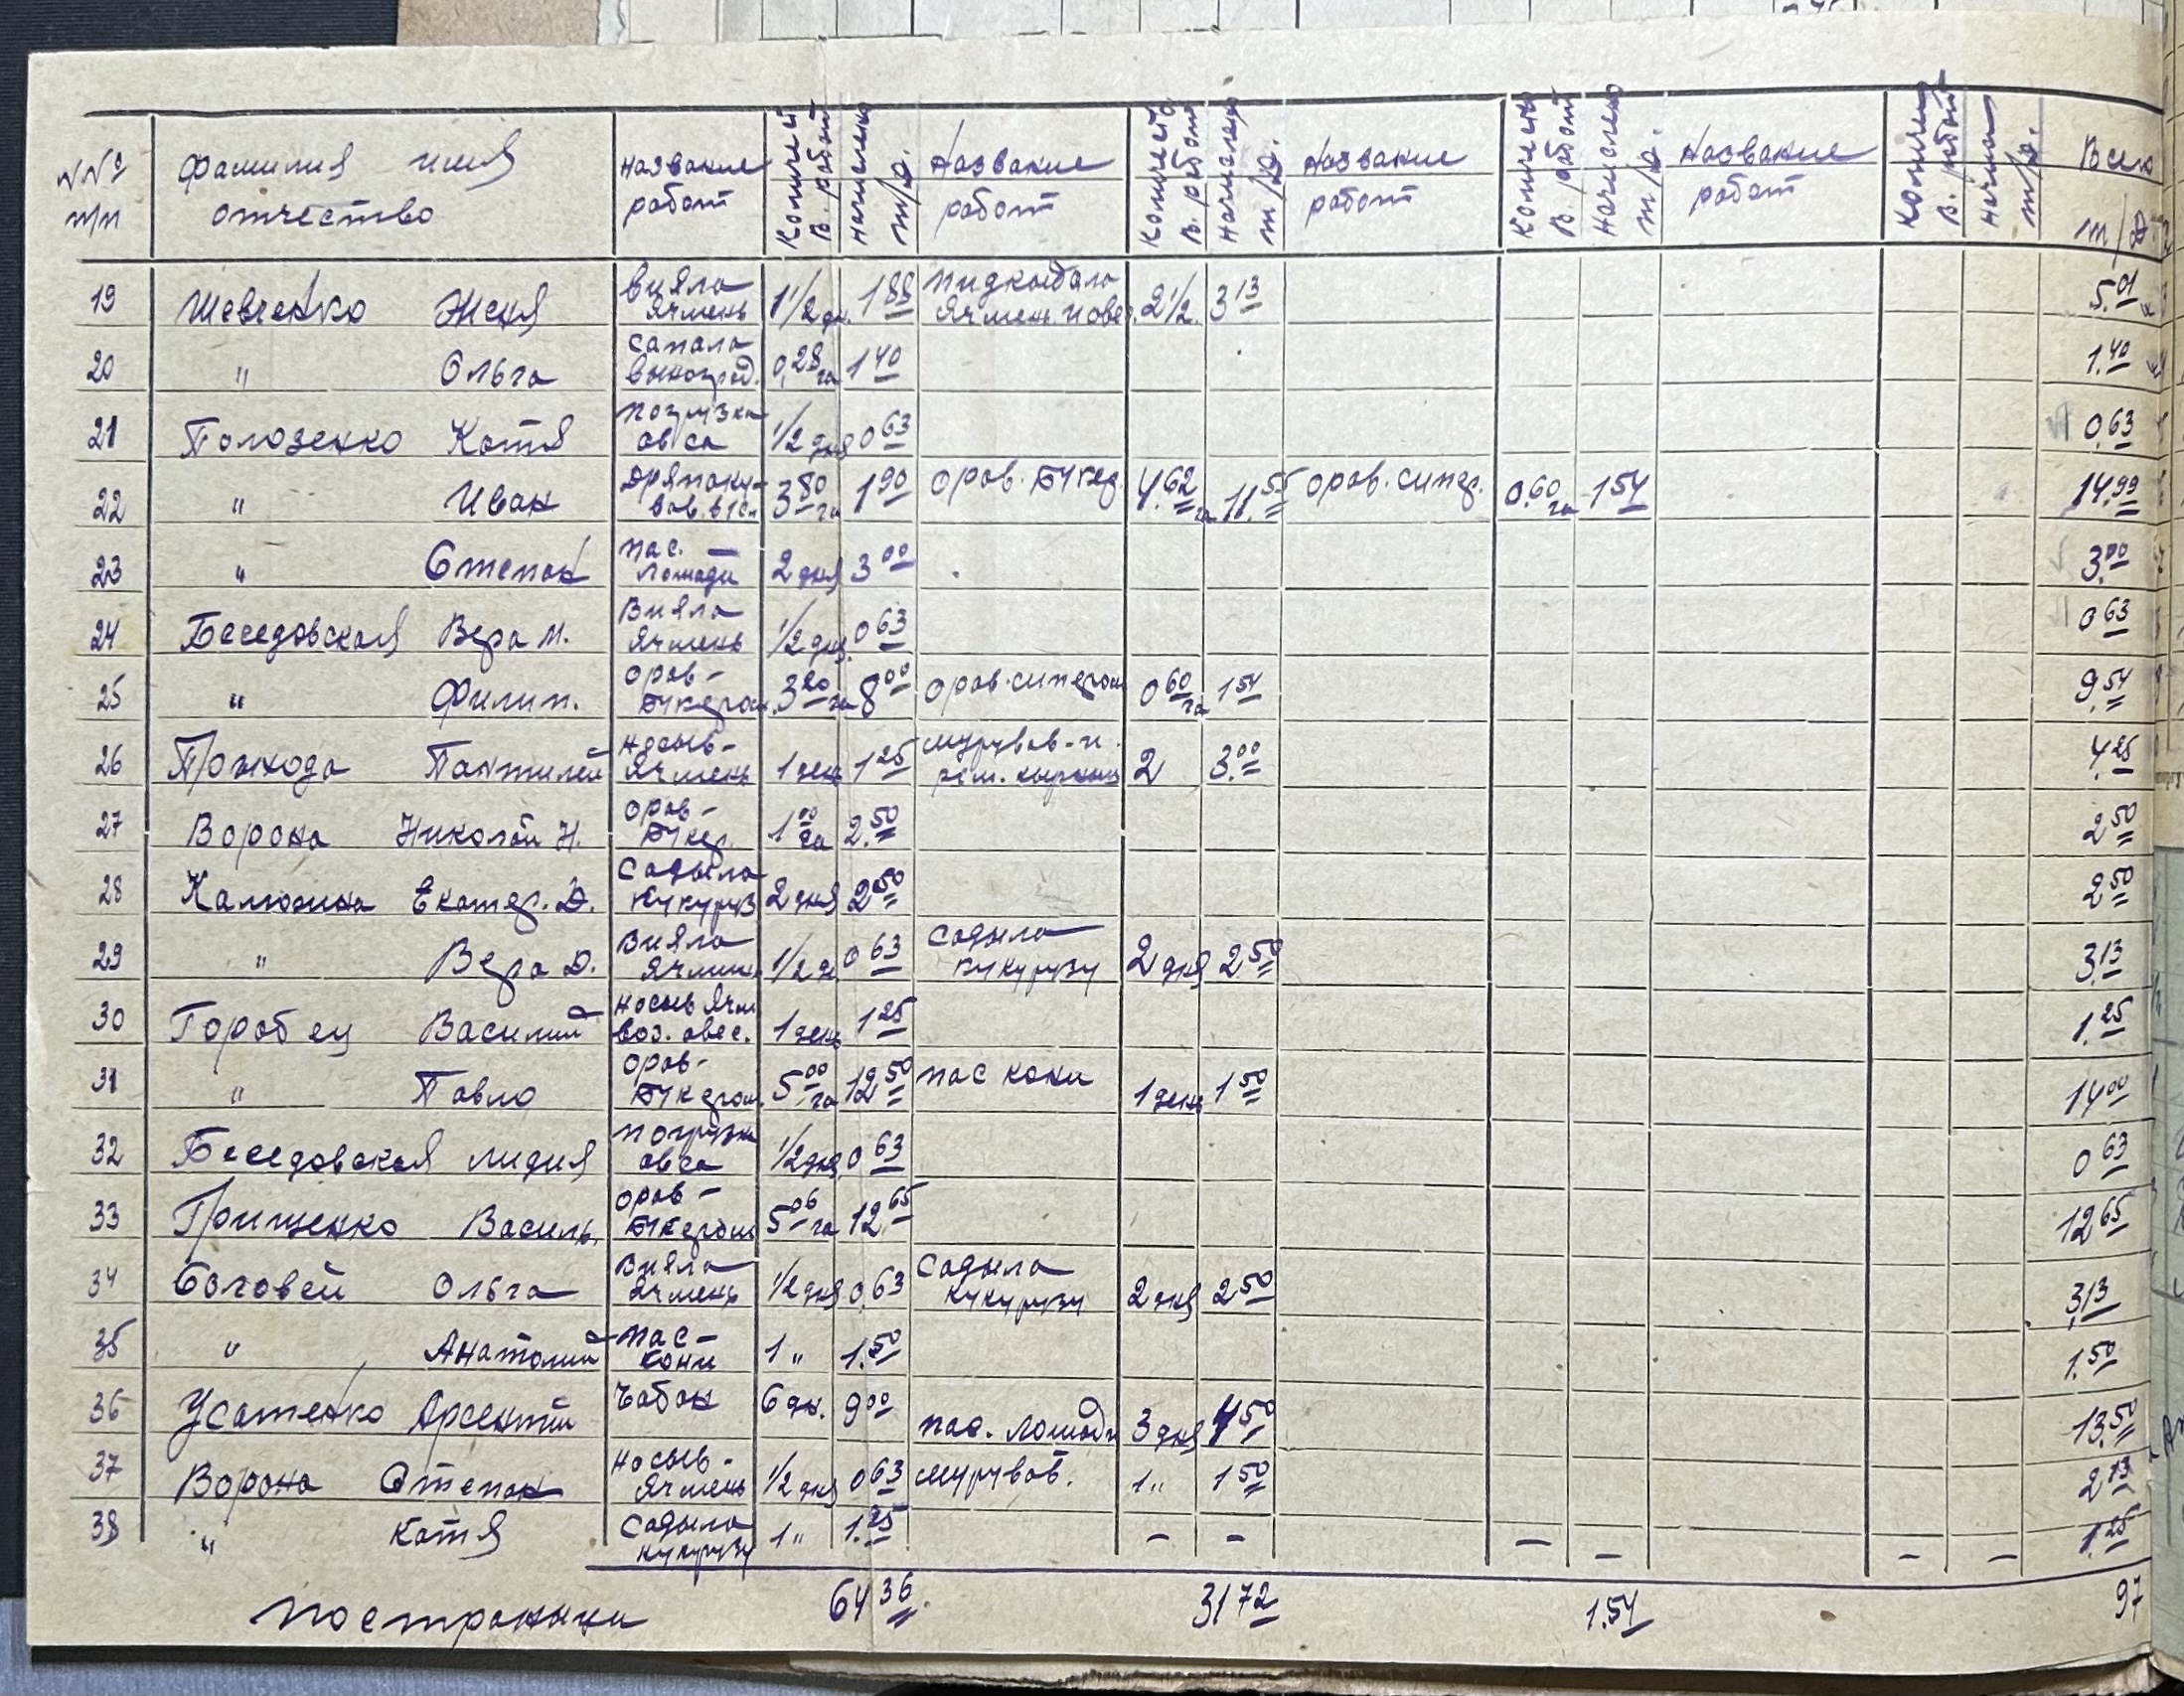 №№ п/п Фамилия имя отчество Название работ Количест. в. работ начислено т/д. Название работ Количест. в. работ начислено т/д. Название работ Количество в. работ начислено т/д. Название работ Количе в. работ начисл т/д. Всего т/д
19 Шевченко Женя Вияла ячмень 1 1/2 дн. 1 88 пидкыдала ячмень и овес. 2 1/2. 3 13 5.01
20 " Ольга сапала виноград. 0,28 га 1 40 1.40
21 Полозенко Катя погрузка овса 1/2 дня 0 63 0,63
22 " Иван 3 80 га 1 90 орав. Букер. 4.62 га 11.55 орав. 0.60 га 1 54 14.99
23 " Степан пас. лошади 2 дня 3 00 3.00
24 Беседовская Вера М. Вияла ячмень 1/2 дня. 0 63 0 63
25 " Филип. орав- Букером. 3 20 га 8 00 орав. 0 60 га 1 54 9.54
26 Прыхода Пантилей носыв- ячмень 1 день 1 25 мурував- и рем. 2 3.00 4.25
27 Ворона Николай Н. орав- Букер. 1 00 га 2.50 2 50
28 Калюжна Екатер. Д. Садыла кукуруз 2 дня 2 50 2 50
29 " Вера Д. Вияла ячмень 1/2 д 0 63 Садыла кукурузу 2 дня 2 50 3.13
30 Горобец Василий носыв ячм воз. овес. 1 день 1 25 1.25
31 " Павло орав- Букером. 5 00 га 12 50 пас кони 1 день 1 50 14 00
32 Беседовская Лидия погрузка овса 1/2 дня 0 63 0 63
33 Грищенко Василь. орав- Букером 5 06 га 12 65 12 65
34 Соловей Ольга Вияла ячмень 1/2 дня 0,63 Садыла кукурузу 2 дня 2 50 3,13
35 " Анатолий пас- кони 1 " 1.50 1.50
36 Усатенко Арсентий Чабан 6 дн. 9 00 пас. лошади 3 дня 4 50 13.50
37 Ворона Степан носыв- ячмень 1/2 дня 0 63 мурував. 1 " 1 50 2 13
38 " Катя Садыла кукурузу 1 " 1.25 – – – – – – 1.25
По страныци 64 36. 31 72 1.54 97